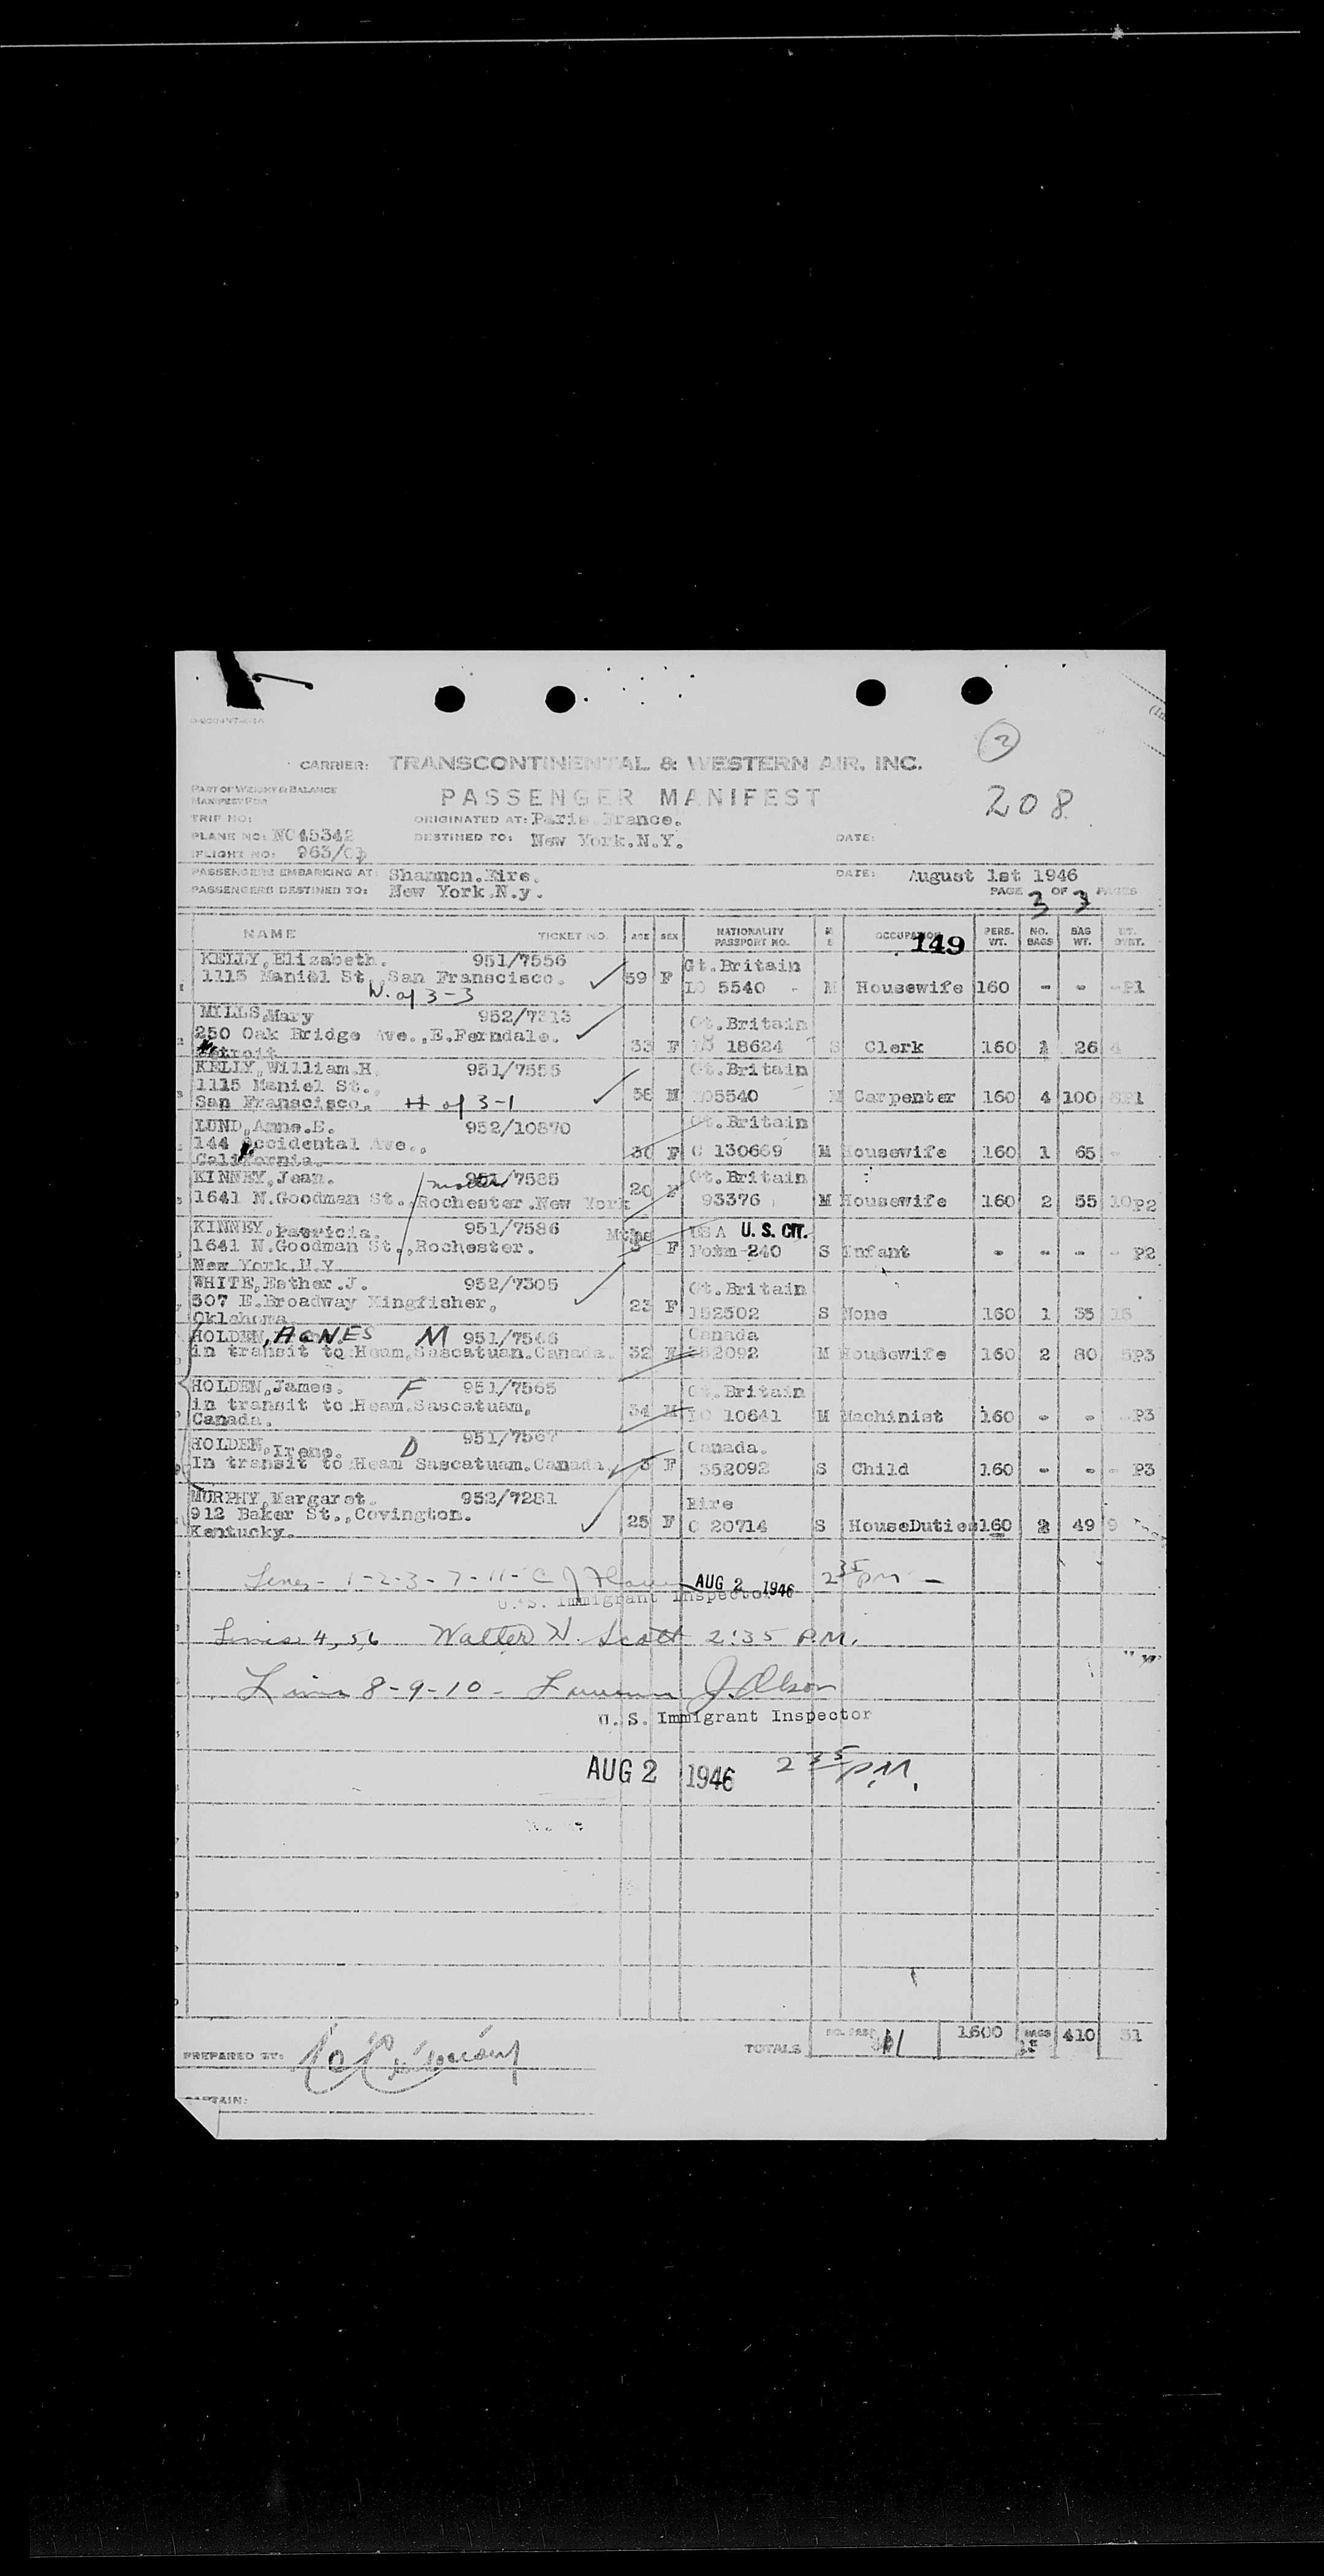 2
208
CARRIER: TRANSCONTINENTAL & WESTERN AIR, INC.
PART OF WEIGHT & BALANCE
MANIFEST FOR
PASSENGER MANIFEST
TRIP NO:
ORIGINATED AT: Paris.France.
PLANE NO: NC45342
DESTINED TO: New York.N.Y.
DATE:
FLIGHT NO: 963/
PASSENGERS EMBARKING AT: Shannon.Eire.
DATE: August 1st 1946
PASSENGERS DESTINED TO: New York.N.y.
PAGE 3 OF 3 PAGES
NAME TICKET NO. AGE SEX NATIONALITY PASSPORT NO. M S OCCUPATION PERS. WT. NO. BAGS BAG WT. WT. OVRT.
149
KELLY,Elizabeth. 951/7556 Gt.Britain
1115 Maniel St.,San Franscisco. 59 F LO 5540 - M Housewife 160 - - -P1
W. of 3-3
MILLS,Mary 952/7313 Gt.Britain
250 Oak Bridge Ave.,E.Ferndale. 33 F 18624 S Clerk 160 1 26 4
Detroit
KELLY,William.H. 951/7555 Gt.Britain
1115 Maniel St.,
San Franscisco. H of 3-1 58 M LO5540 M Carpenter 160 4 100 P1
LUND,Anne.E. 952/10870 Gt.Britain
144 Occidental Ave., 30 F C 130669 M Housewife 160 1 65 -
California.
KINNEY,Jean. mother 951/7585 Gt.Britain
1641 N.Goodman St.,Rochester.New York 20 F 93376 M Housewife 160 2 55 10P2
KINNEY,Patricia. 951/7586 Mths USA U. S. CIT.
1641 N.Goodman St.,Rochester. F Form-240 S Infant - - - - P2
New York.N.Y.
WHITE,Esther.J. 952/7305 Gt.Britain
507 E.Broadway Kingfisher, 23 F 152502 S None 160 1 35
Oklahoma.
HOLDEN,AGNES M 951/7566 Canada
in transit to Heam.Sascatuan.Canada. 32 F 352092 M Housewife 160 2 80 P3
HOLDEN,James. F 951/7565 Gt.Britain
in transit to Heam.Sascatuam. 34 M LO 10641 M Machinist 160 - - P3
Canada.
HOLDEN,Irene. D 951/7567 Canada.
In transit to Heam Sascatuam.Canada. 3 F 352092 S Child 160 - - - P3
MURPHY,Margaret. 952/7281 Eire
912 Baker St.,Covington. 25 F C 20714 S HouseDuties 160 2 49 9
Kentucky.
Lines - 1-2-3-7-11- AUG 2 1946 2 35 PM -
U. S. Immigrant Inspector
Lines 4,5,6 Walter H. Scott 2:35 P.M.
Lines 8-9-10 - J. Olson
U. S. Immigrant Inspector
AUG 2 1946 2 35 P.M.
TOTALS NO. PASS 11 1600 BAGS 410 31
PREPARED BY:
CAPTAIN: